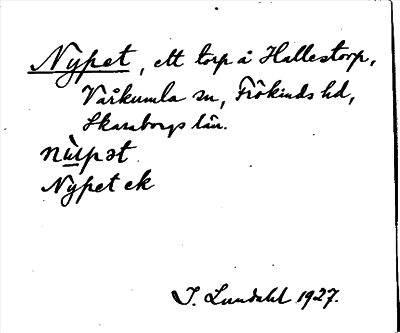 Nypet, ett torp å Hallestorp,
Vårkumla sn, Frökinds hd,
Skaraborgs län.
nùpət
Nypet ek
I. Lundahl 1927.